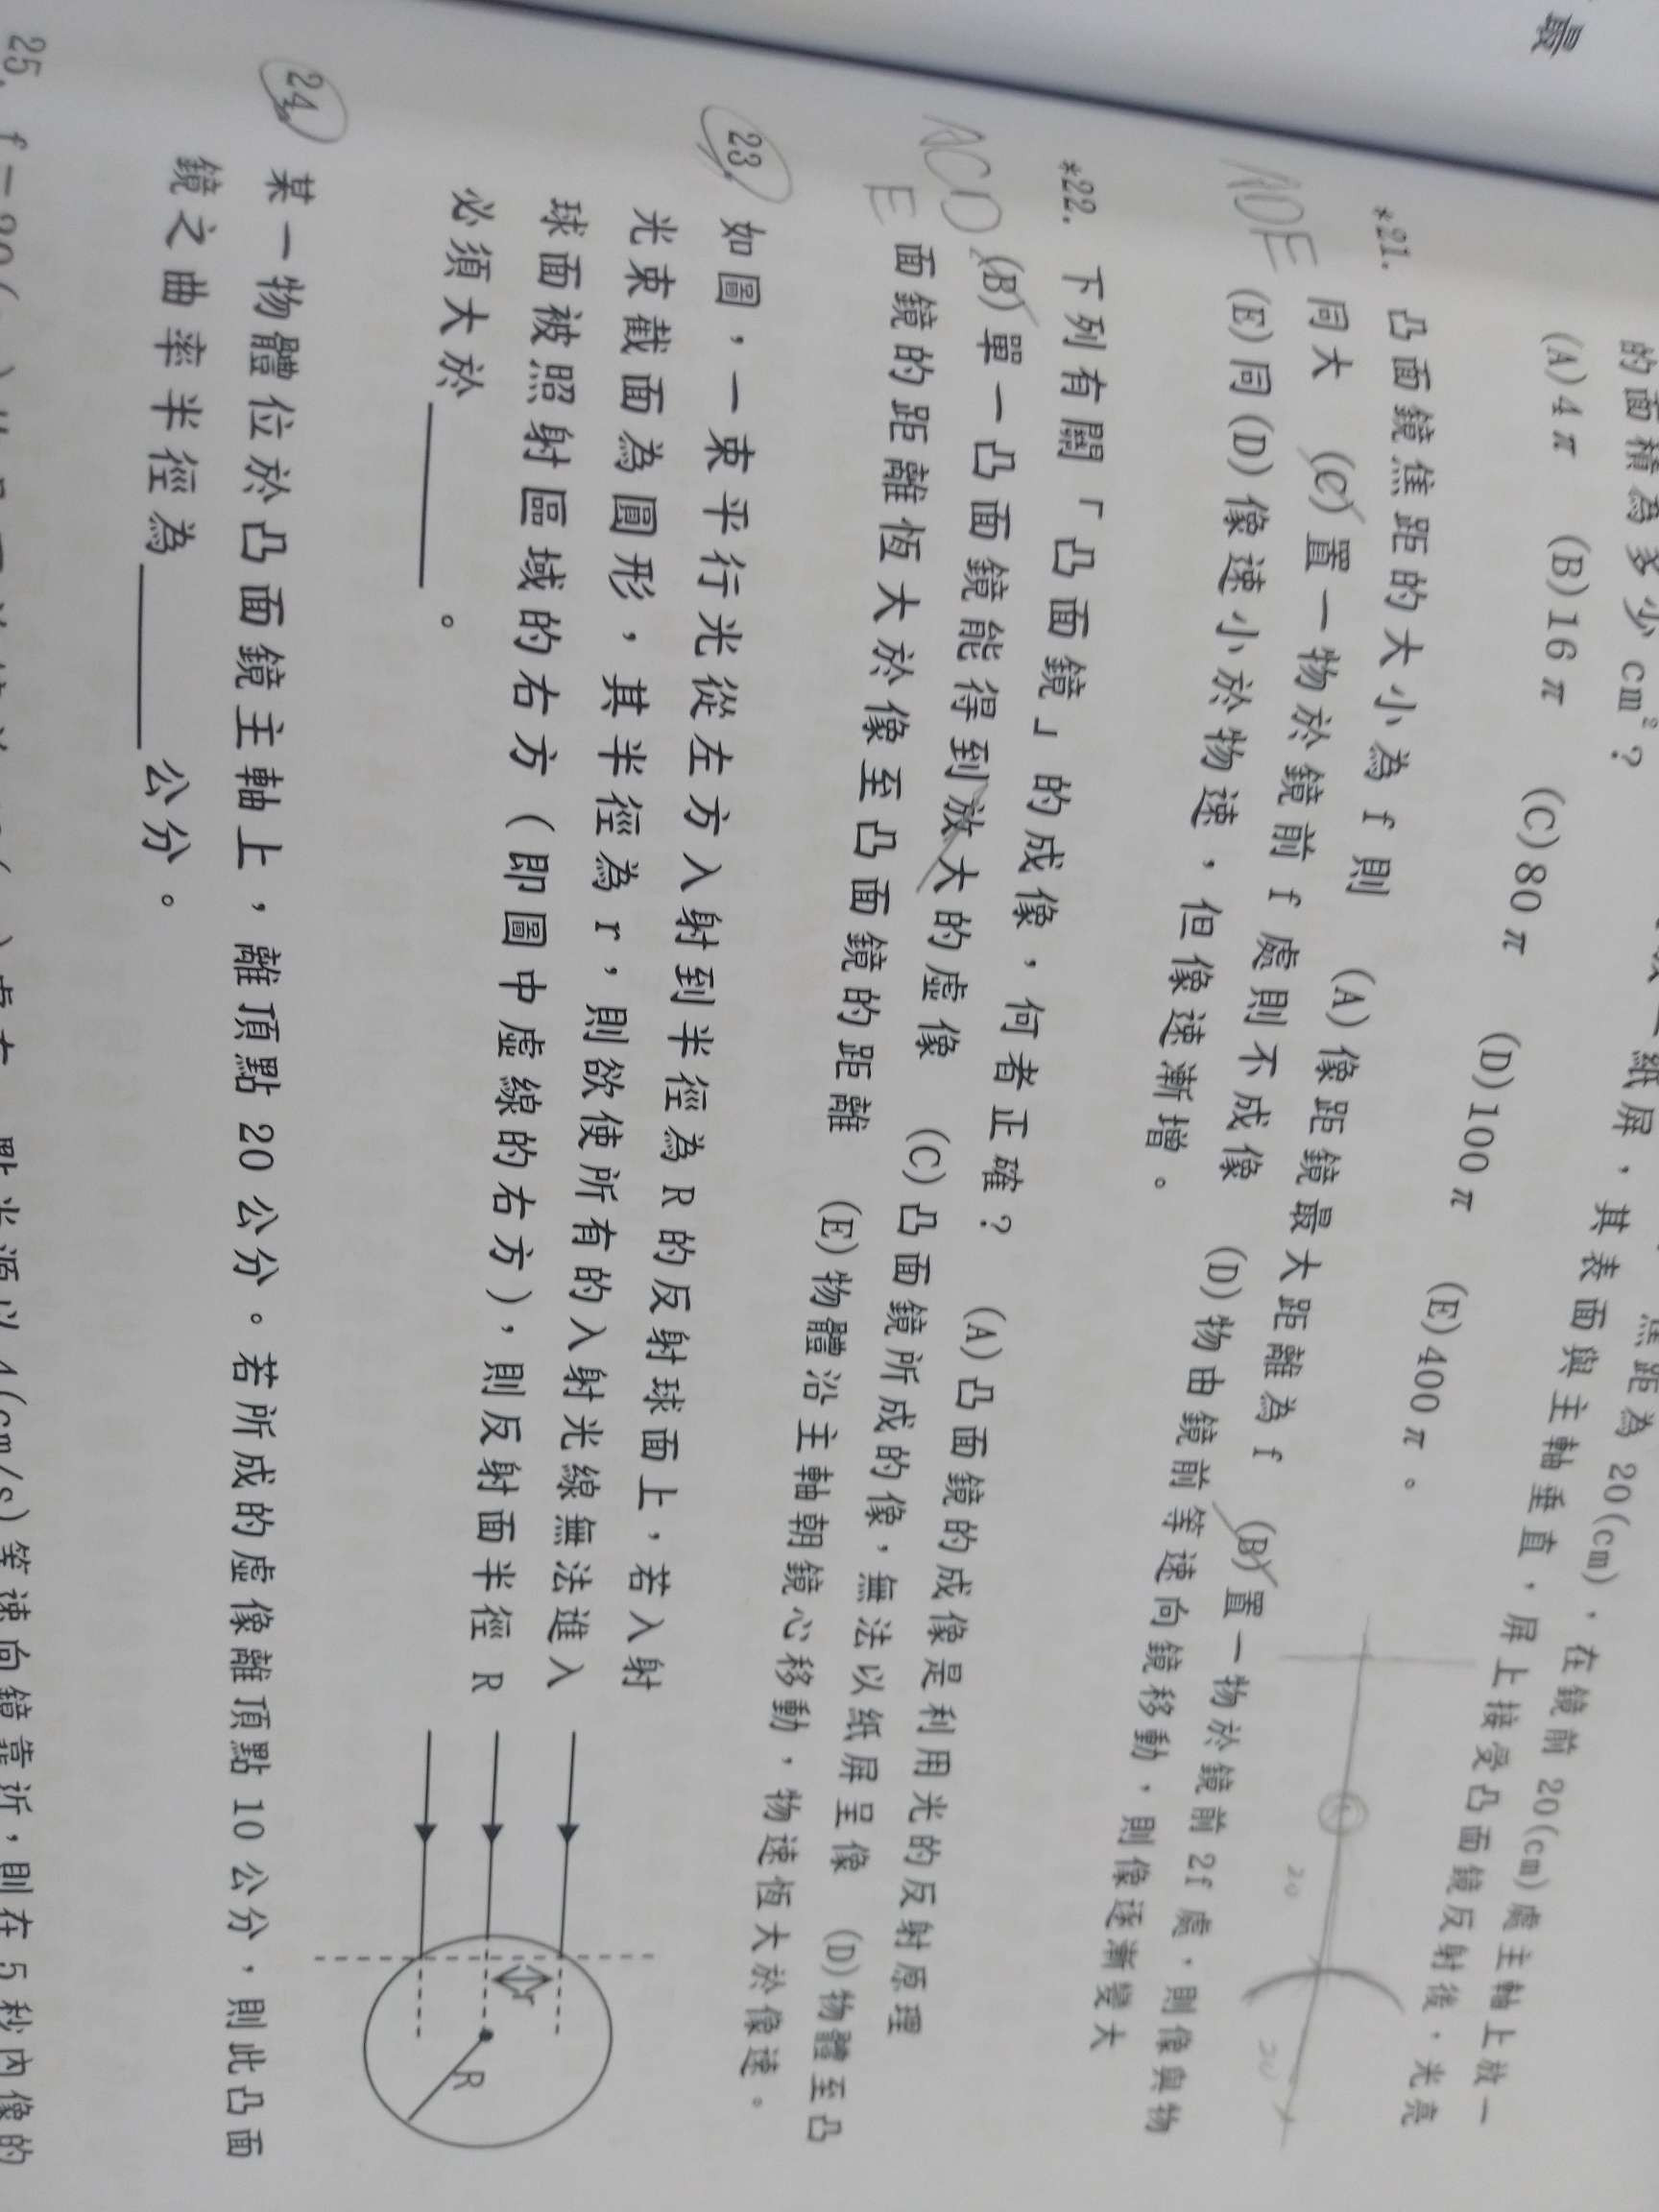 最
的面積為多少 cm²?
(A)4π (B)16π (C)80π (D)100π (E)400π。
焦距為 20(cm),在鏡前 20(cm)處主軸上放一
紙屏,其表面與主軸垂直,屏上接受凸面鏡反射後,光亮
*21. 凸面鏡焦距的大小為 f 則 (A)像距鏡最大距離為 f (B)置一物於鏡前 2f 處,則像與物
同大 (C)置一物於鏡前 f 處則不成像 (D)物由鏡前等速向鏡移動,則像逐漸變大
(E)同(D)像速小於物速,但像速漸增。
ADE
20
20
*22. 下列有關「凸面鏡」的成像,何者正確? (A)凸面鏡的成像是利用光的反射原理
(B)單一凸面鏡能得到放大的虛像 (C)凸面鏡所成的像,無法以紙屏呈像 (D)物體至凸
面鏡的距離恆大於像至凸面鏡的距離 (E)物體沿主軸朝鏡心移動,物速恆大於像速。
ACD
E
23. 如圖,一束平行光從左方入射到半徑為 R 的反射球面上,若入射
光束截面為圓形,其半徑為 r,則欲使所有的入射光線無法進入
球面被照射區域的右方(即圖中虛線的右方),則反射面半徑 R
必須大於______。
r
R
24. 某一物體位於凸面鏡主軸上,離頂點 20 公分。若所成的虛像離頂點 10 公分,則此凸面
鏡之曲率半徑為______公分。
25. 點光源以 4(cm/s)等速向鏡靠近,則在 5 秒內像的